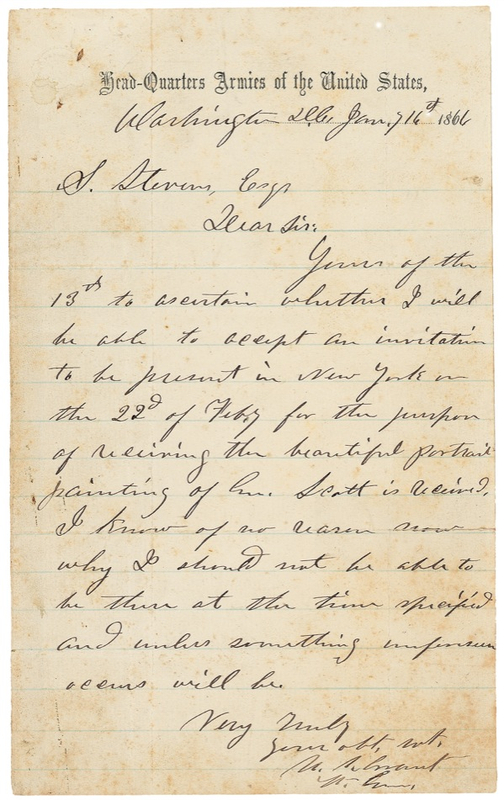 Head-Quarters Armies of the United States,
Washington D.C. Jan.y 16th 1866
S. Stevens, Esqr
Dear Sir:
Yours of the
13th to ascertain whether I will
be able to accept an invitation
to be present in New York on
the 22d of Feby for the purpose
of receiving the beautiful portrait
painting of Gn. Scott is received.
I know of no reason now
why I should not be able to
be there at the time specified
and unless something unforeseen
occurs will be.
Very Truly
your obt. svt.
U. S. Grant
Lt. Gn.